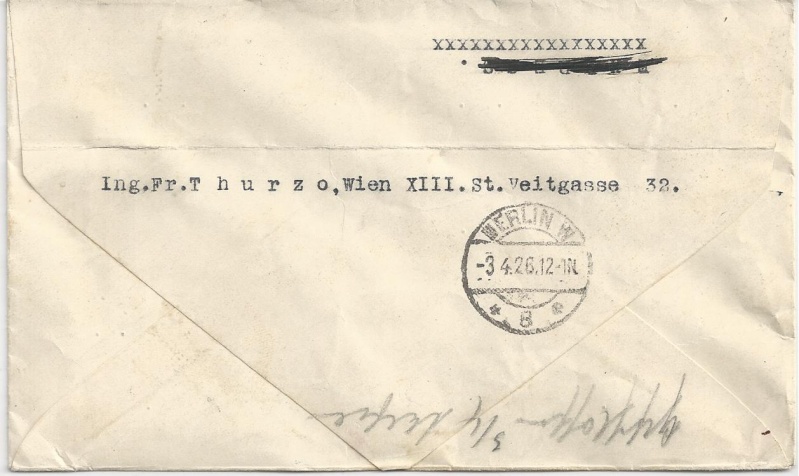 XXXXXXXXXXXXXXXXX
Ing.Fr.T h u r z o,Wien XIII.St.Veitgasse 32.
BERLIN W
-3.4.26.12-1N.
* 8 *